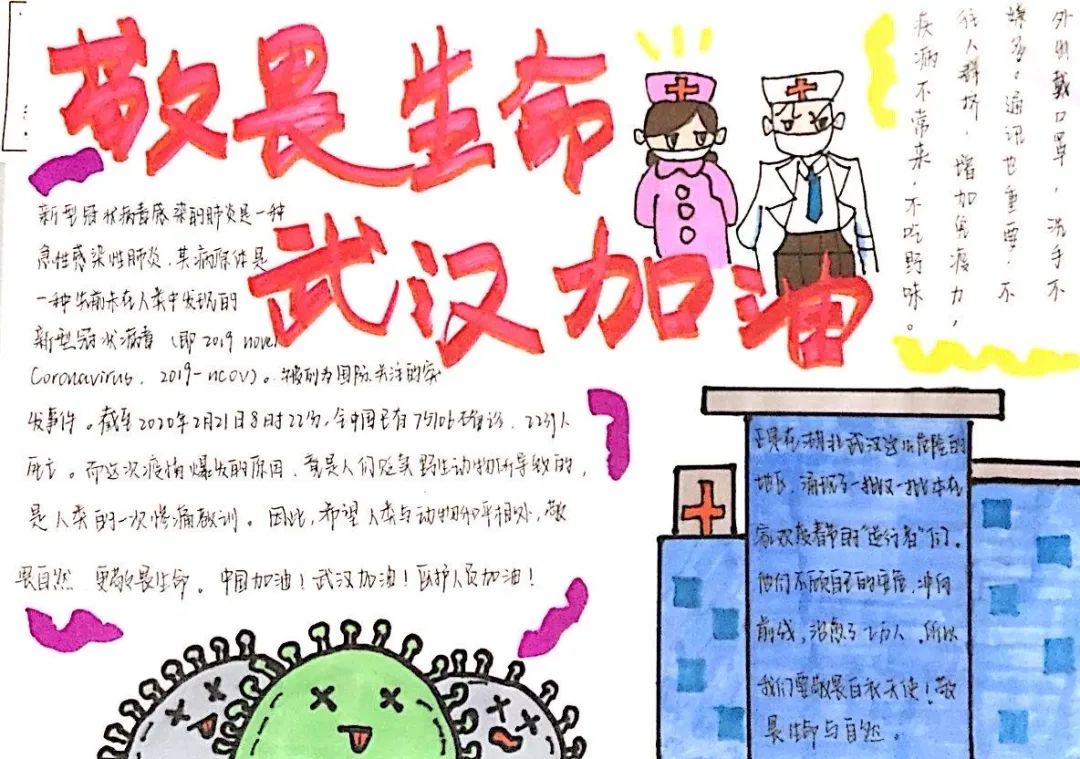 敬畏生命
武汉加油
新型冠状病毒感染的肺炎是一种
急性感染性肺炎,其病原体是
一种先前未在人类中发现的
新型冠状病毒(即2019 novel
Coronavirus,2019-nCoV)。被列为国际关注的突
发事件。截至2020年2月21日8时22分,全中国已有75106确诊,2239人
死亡。而这次疫情爆发的原因,竟是人们贩卖野生动物所导致的,
是人类的一次惨痛教训。因此,希望人类与动物和平相处,敬
畏自然 更敬畏生命。中国加油!武汉加油!医护人员加油!
外出戴口罩,洗手不
嫌多。通讯也重要,不
往人群挤,增加免疫力,
疾病不常来,不吃野味。
正是在湖北武汉这片危险的
地区,涌现了一批又一批本在
家欢度春节的“逆行者”们,
他们不顾自己的安危,冲向
前线,治愈了2万人,所以
我们要敬畏白衣天使!敬
畏生命与自然。